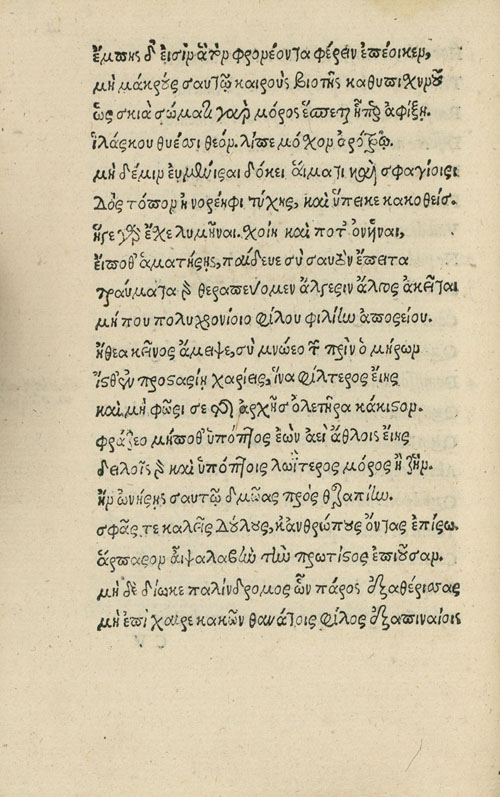 ἔμπης δ' εἰσὶν ἂπερ φρονέοντα φέρειν ἐπέοικεν,
μὴ μάκρους σαυτῷ καιροὺς βιοτῆς καθυπιχνοῦ
ὡς σκιὰ σώματι γὰρ μόρος ἕπεται ἠπὲρ ἀφίξῃ.
ἱλάσκου θυέεσι θεόν. λίπε μόχον ἀρότρῳ.
μὴ δέ μιν εὐμενίσαι δόκει ἅιματι καὶ σφαγίοισι
Δὸς τόπον ἠνορέηφι τύχης, καὶ ὕπεικε κακοθεῖσ.
ἥγε γὰρ ἔχε λυμῆναι. χοίη καὶ ποτ' ὀνῆναι,
εἴποθ' ἁματήσῃς, παίδευε σὺ σαυτὸν ἔπειτα
τραύματα δὲ θεραπεύομεν ἄλγεσιν ἄλγος ἀκεῖται
μή που πολυχρονίοιο φίλου φιλίην ἀποσείου.
ἤθεα κεῖνος ἄμειψε, σὺ μνώεο τῶν πρὶν ὁμήρων
ἴσθ' ὢν προσασίῃ χαρίεις, ἵνα φίλτερος εἴῃς
καὶ μὴ φῶσί σε τῆς ἀρχῆς ὀλετῆρα κάκιστον.
φράζεο μήποθ' ὑπόπτος ἐὼν ἀεὶ ἄθλοις εἴῃς
δειλοῖς δὲ καὶ ὑπόπτοις λωΐτερος μόρος ἢ ζῆν.
ἢν ὠνήσῃς σαυτῷ δμῶας πρὸς θεραπίην.
σφᾶς τε καλεῖς δούλους, κἀνθρώπους ὄντας ἐπίσχω.
ἅρπασον αἶψα λαβὼν τὴν πρώτιστος ἐπιοῦσαν.
μὴ δὲ δίωκε παλίνδρομος ὧν πάρος ἐξαθέρισσας
μὴ ἐπίχαιρε κακῶν θανάτοις φίλος ἐξαπιναίοις